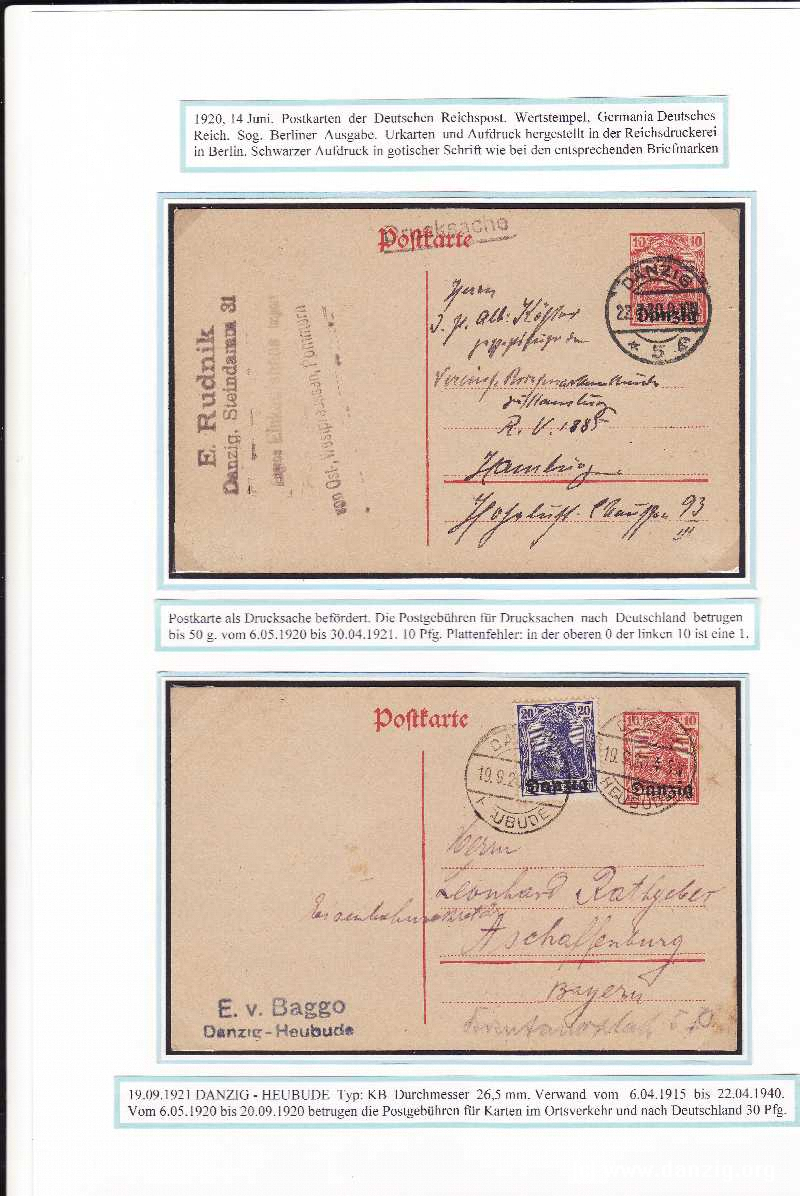 1920, 14 Juni. Postkarten der Deutschen Reichspost. Wertstempel. Germania Deutsches
Reich. Sog. Berliner Ausgabe. Urkarten und Aufdruck hergestellt in der Reichsdruckerei
in Berlin. Schwarzer Aufdruck in gotischer Schrift wie bei den entsprechenden Briefmarken
Drucksache
Postkarte
10 10
DANZIG
Danzig
* 5 e
E. Rudnik
Danzig, Steindamm 31
von Ost-, Westpreussen, Pommern
Herrn
J. H. Alb. Köster
R. V. 1885
Hamburg
93
III
Postkarte als Drucksache befördert. Die Postgebühren für Drucksachen nach Deutschland betrugen
bis 50 g. vom 6.05.1920 bis 30.04.1921. 10 Pfg. Plattenfehler: in der oberen 0 der linken 10 ist eine 1.
Postkarte
20 20
10 10
19.9.2
Danzig
HEUBUDE
Danzig
UBUDE
Herrn
Leonhard Rathgeber
Eisenbahnsekretär
Aschaffenburg
Bayern
E. v. Baggo
Danzig-Heubude
19.09.1921 DANZIG - HEUBUDE Typ: KB Durchmesser 26,5 mm. Verwand vom 6.04.1915 bis 22.04.1940.
Vom 6.05.1920 bis 20.09.1920 betrugen die Postgebühren für Karten im Ortsverkehr und nach Deutschland 30 Pfg.
www.danzig.org